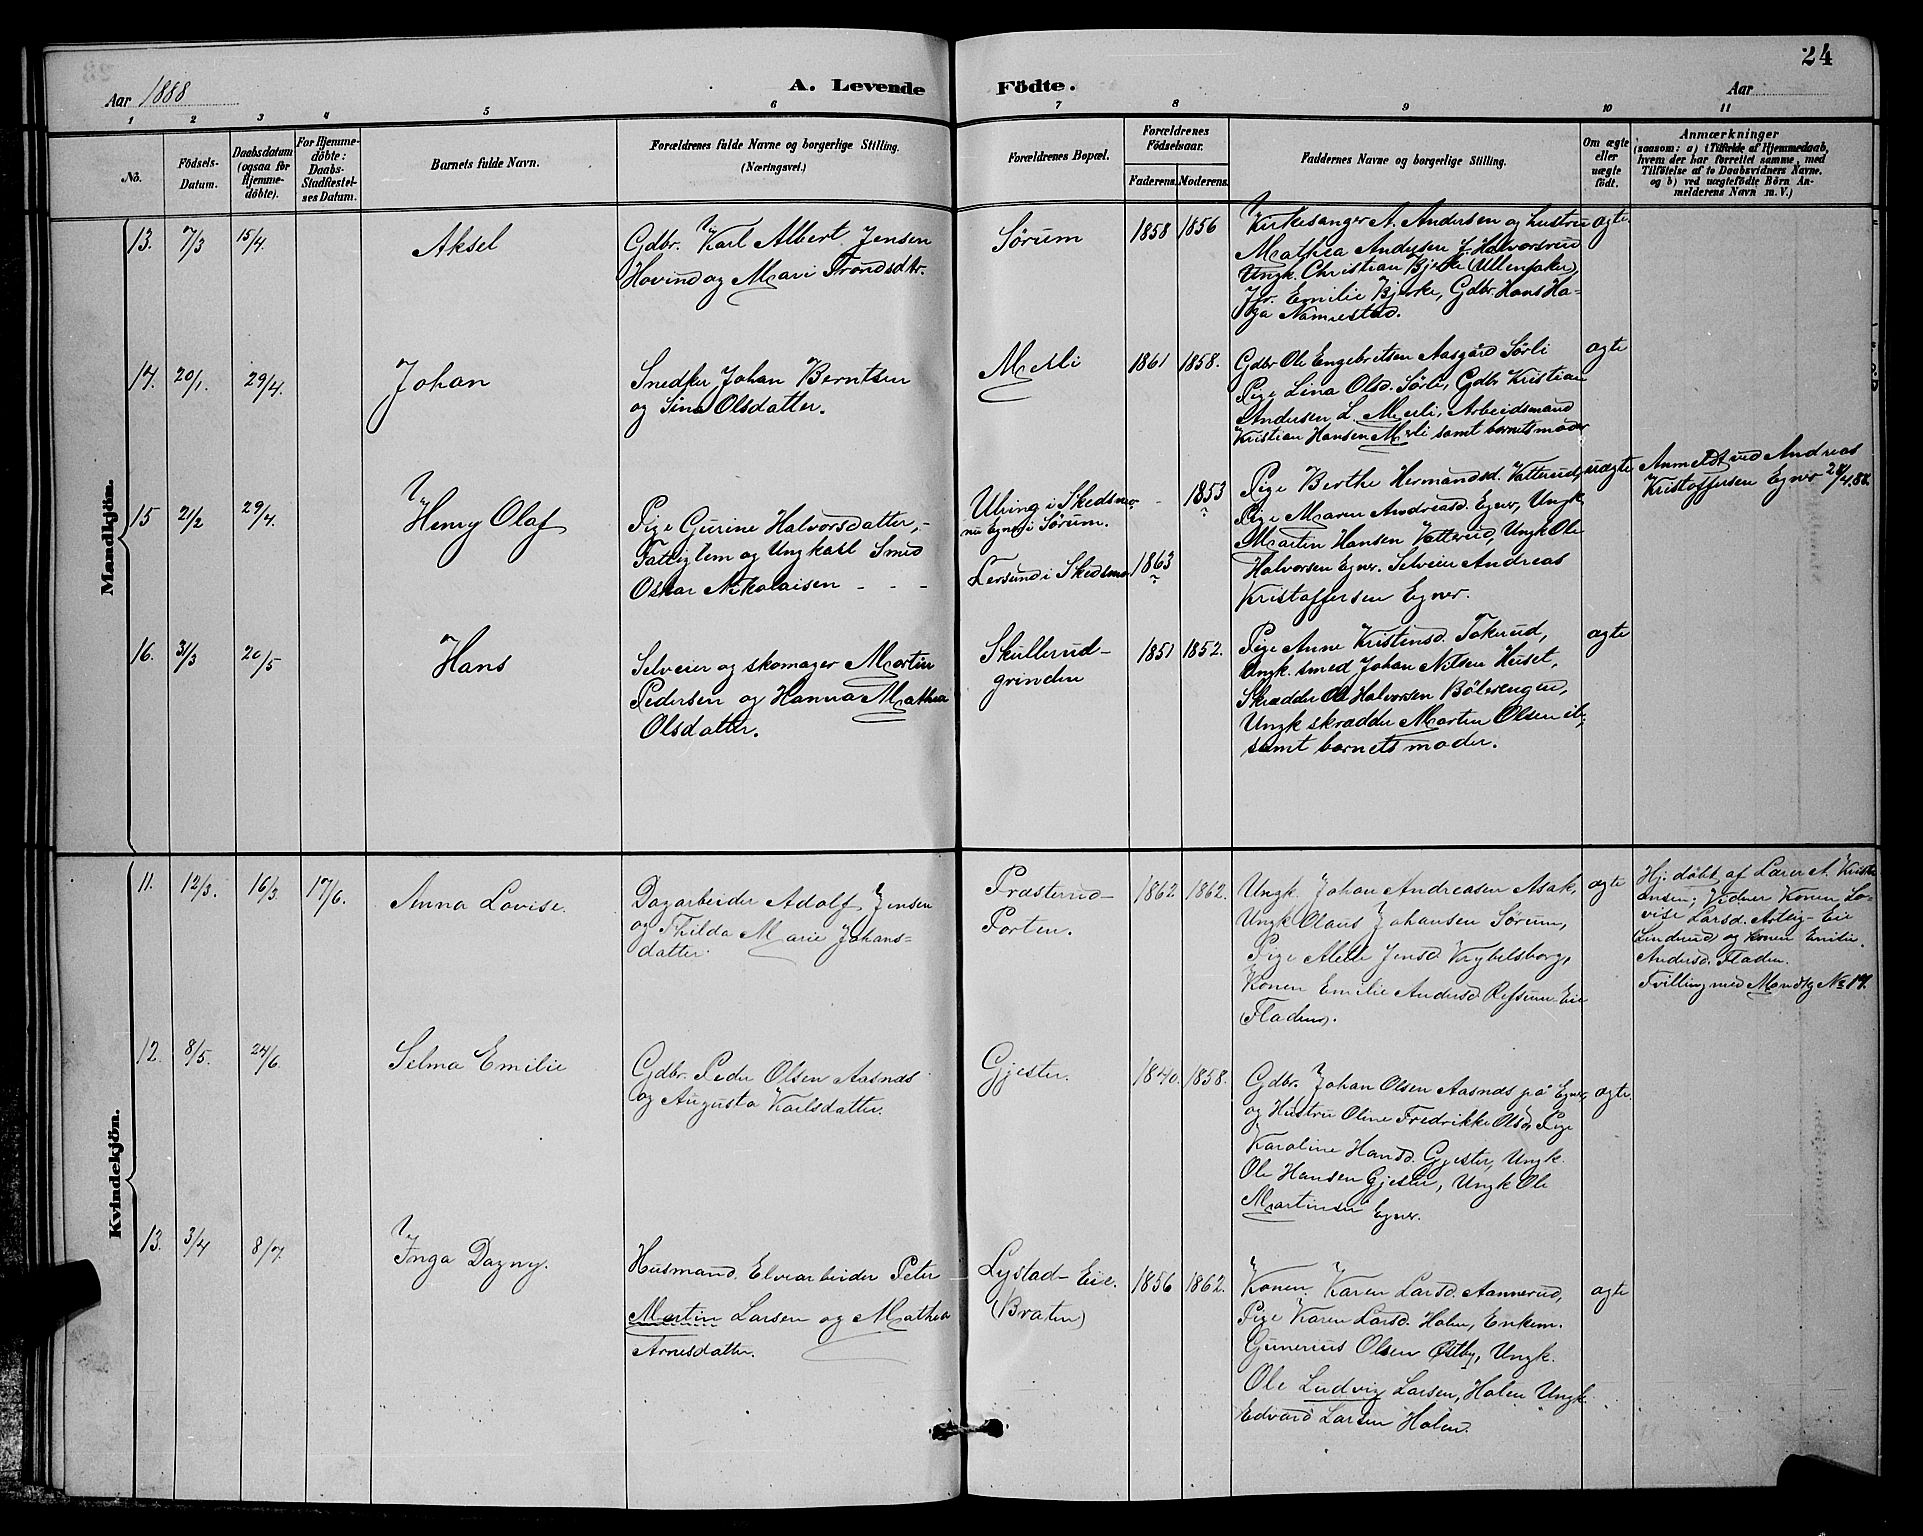 24
Aar 1888
A. Levende Födte.
Aar
1 2 3 4 5 6 7 8 9 10 11
No.
Födsels-Datum.
Daabsdatum (ogsaa for Hjemme-döbte).
For Hjemme-döbte: Daabs-Stadfæstel-ses Datum.
Barnets fulde Navn.
Forældrenes fulde Navne og borgerlige Stilling.
(Næringsvei.)
Forældrenes Bopæl.
Forældrenes Födselsaar.
Faderens. Moderens.
Faddernes Navne og borgerlige Stilling.
Om ægte eller uægte födt.
Anmærkninger
(saasom: a) i Tilfælde af Hjemmedaab,
hvem der har forrettet samme, med
Tilföielse af to Daabsvidners Navne.
og b) ved uægtefödte Börn An-
melderens Navn m. V.)
Mandkjön.
13. 7/3 15/4. Aksel
Gdbr. Karl Albert Jensen
Hovind og Mari Trondsdtr.
Sørum 1858 1856
Kirkesanger A. Andersen og hustru
Mathea Andersen f. Halvorsrud
Ungk. Christian Bjerke (Ullensaker),
Jfr. Emilie Bjerke, Gdbr. Hans Ha-
ga Namnestad.
ægte
14. 20/1. 29/4. Johan
Snedker Johan Berntsen
og Sina Olsdatter.
Merli 1861 1858.
Gdbr Ole Engebretsen Aasgård Sørli
Pige Lina Olsd. Sørli, Gdbr Kristian
Andersen L. Merli, Arbeidsmand
Kristian Hansen Merli samt barnets moder
ægte
15 2/2 29/4. Henry Olaf
Pige Gurine Halvorsdatter,
Fattiglem og Ungkarl Smed
Oskar Nikolaisen - - -
Ulving i Skedsmo,
nu Egner i Sørum. - 1853
Lersund i Skedsmo 1863
Pige Berthe Hermandsd. Vatterud,
Pige Maren Andreasd. Egner, Ungk
Martin Hansen Vatterud, Ungk Ole
Halvorsen Egner. Selveier Andreas
Kristoffersen Egner.
uægte
Anmeldt ved Andreas
Kristoffersen Egner 28/4.88.
16. 3/3 20/5 Hans
Selveier og skomager Martin
Pedersen og Hanna Mathea
Olsdatter.
Skullerud-
grinden 1851 1852.
Pige Anne Kristensd. Tokerud,
Ungk. smed Johan Nilsen Huset,
Skrædder Ole Halvorsen Bölerengen,
Ungk skrædder Martin Olsen ib.,
samt barnets moder.
ægte
Kvindekjön.
11. 12/3. 16/3 17/6. Anna Lovise.
Dagarbeider Adolf Jensen
og Thilda Marie Johans-
datter.
Præsterud-
Porten. 1862 1862.
Ungk. Johan Andreasen Asak,
Ungk Olaus Johansen Sørum,
Pige Alette Jensd Krybelsborg,
Konen Emilie Andersd Refsum Eie
(Fladen).
ægte
Hj. døbt af Lærer A. Kristi-
ansen; Vidner Konen Lo-
vise Larsd. Asak Eie
(Lindrud) og konen Emilie
Andersd. Fladen.
Tvilling med Mandkj. No 17.
12. 8/5. 24/6 Selma Emilie
Gdbr. Peder Olsen Aasnæs
og Augusta Karlsdatter.
Gjester. 1840. 1858.
Gdbr. Johan Olsen Aasnæs på Egner
og Hustru Oline Fredrikke Olsd, Pige
Karoline Hansd. Gjester, Ungk.
Ole Hansen Gjester, Ungk Ole
Martinsen Egner.
ægte.
13. 3/4 8/7 Inga Dagny.
Husmand. Elvearbeider Peter
Martin Larsen og Mathea
Arnesdatter.
Lystad-Eie.
(Braten) 1856 1862.
Konen Karen Larsd. Aannerud,
Pige Karen Larsd. Holen, Enkem.
Gunerius Olsen Østby, Ungk.
Ole Ludvig Larsen, Holen Ungk
Edvard Larsen Holen.
ægte